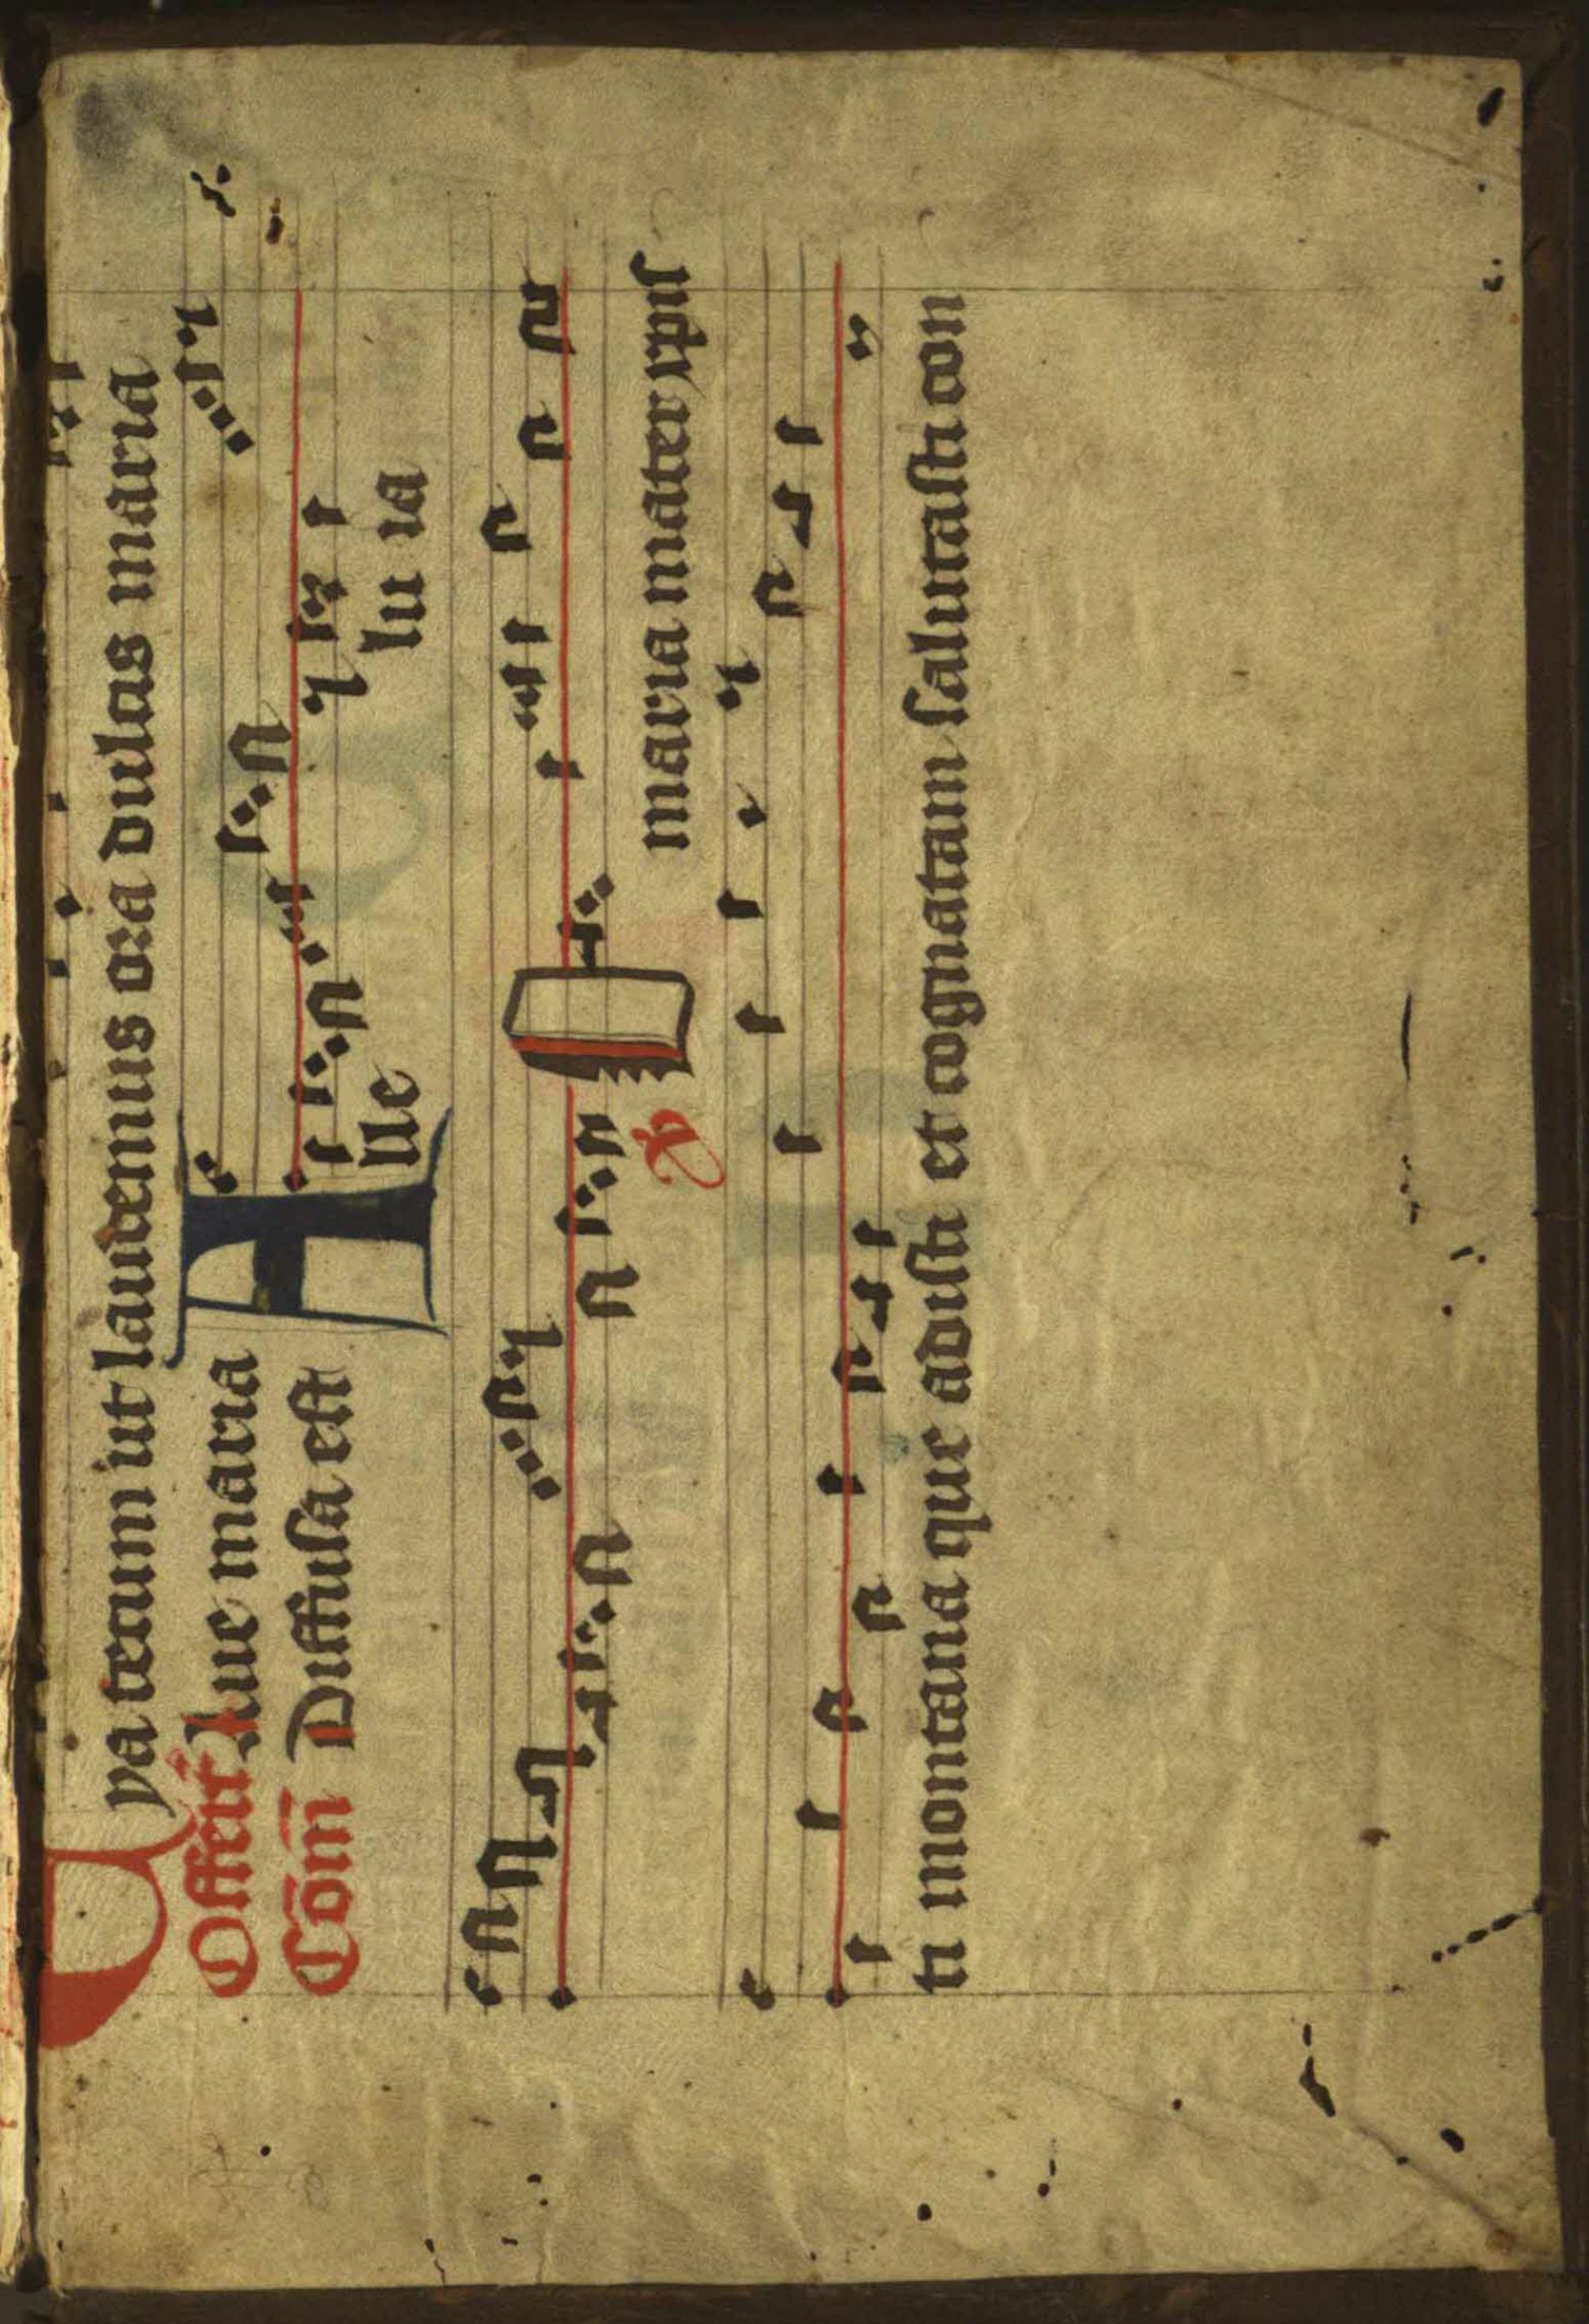 ya tecum iut laudemus ora dulcis maria
Offert̄ Aue maria
Com̄ Diffusa est
Alle lu ia
℣ O maria mater xp̄i
ti montana que adisti et cognatam salutasti con